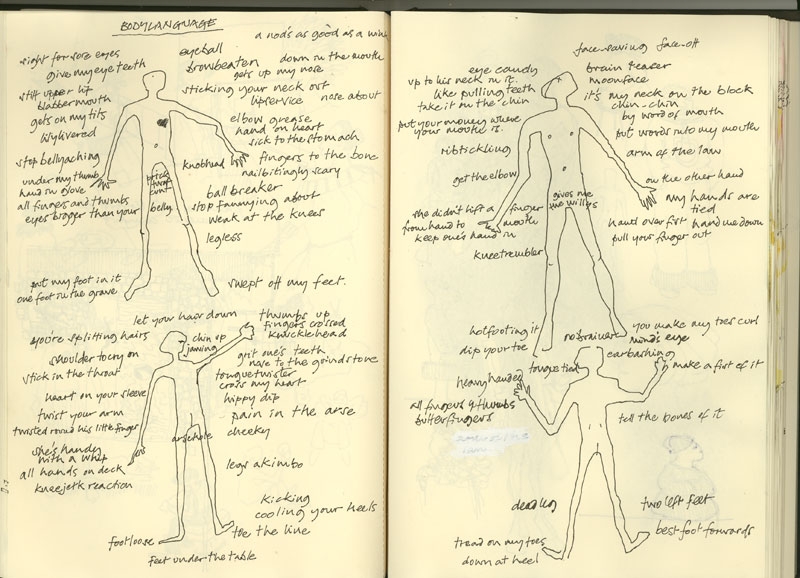 BODYLANGUAGE
a nod's as good as a wink
sight for sore eyes
give my eye teeth
stiff upper lip
blabbermouth
gets on my tits
lilylivered
stop bellyaching
under my thumb
hand in glove
all fingers and thumbs
eyes bigger than your
belly
eyeball
browbeaten
down in the mouth
gets up my nose
sticking your neck out
lipservice
nose about
elbow grease
hand on heart
sick to the stomach
knobhead
fingers to the bone
nailbitingly scary
ball breaker
stop fannying about
weak at the knees
legless
put my foot in it
one foot in the grave
swept off my feet.
let your hair down
you're splitting hairs
shoulder to cry on
stick in the throat
heart on your sleeve
twist your arm
twisted round his little finger
she's handy
with a whip
all hands on deck
kneejerk reaction
footloose
feet under the table
thumbs up
fingers crossed
knucklehead
chin up
jawing
grit one's teeth
nose to the grindstone
tonguetwister
cross my heart
hippy dip
pain in the arse
arsehole
cheeky
legs akimbo
kicking
cooling your heels
toe the line
face-saving face-off
eye candy
up to his neck in it
like pulling teeth
take it on the chin
put your money where
your mouth is.
ribtickling
get the elbow
she didn't lift a finger
from hand to mouth
keep one's hand in
kneetrembler
brain teaser
moonface
it's my neck on the block
chin-chin
by word of mouth
put words into my mouth
arm of the law
on the other hand
my hands are
tied
gives me
the willies
hand over fist hand me down
pull your finger out
hotfooting it
dip your toe
no brainer
you make my toes curl
mind's eye
earbashing
tongue tied
make a fist of it
heavy handed
all fingers & thumbs
butterfingers
tell the bones of it
dead leg
two left feet
best foot forwards
tread on my toes
down at heel